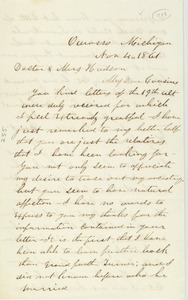 Owosso Michigan
Nov 4th 1861
Doctor & Mrs Hudson
My Dear Cousins
Your kind letters of the 19th ult
were duly received for which
I feel extremely greatful I have
just remarked to my better half
that you are just the relatives
that I have been looking for
you not only seem to appreciate
my desire to trace out my ancestry
but you seem to have natural
affection I have no words to
express to you my thanks for the
information contained in your
letter It is the first that I have
been able to trace further back
than Grand father Turner, and
did not know before who he
married